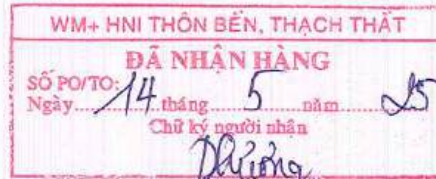 WM+ HNI THÔN BẾN, THẠCH THẤT
ĐÃ NHẬN HÀNG
SỐ PO/TO:
Ngày....14.tháng.....5......năm.......25
Chữ ký người nhận